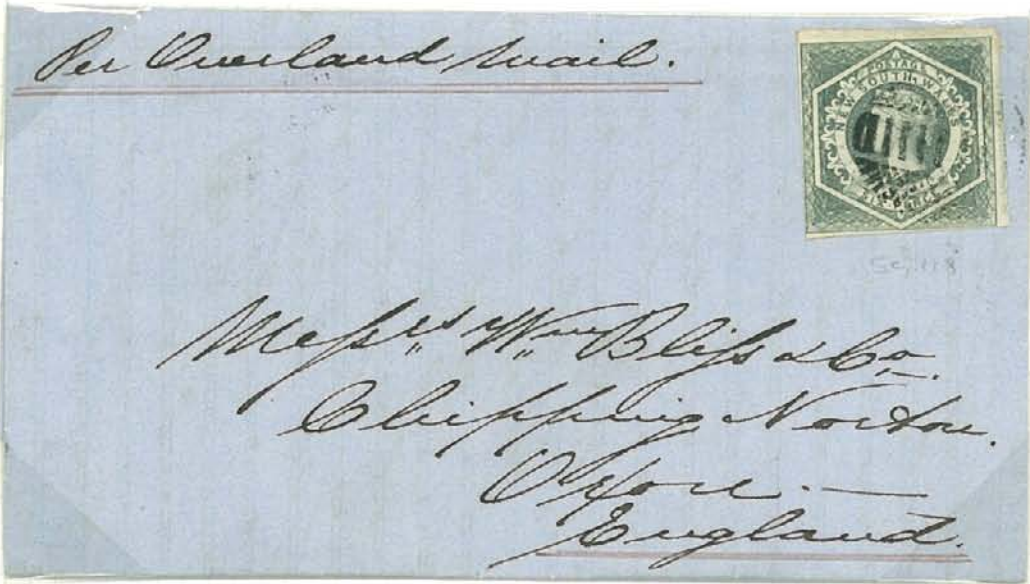 Per Overland Mail.
POSTAGE
NEW SOUTH WALES
SG 118
Messrs. Wm. Bliss & Co.
Chipping Norton.
Oxon. —
England.